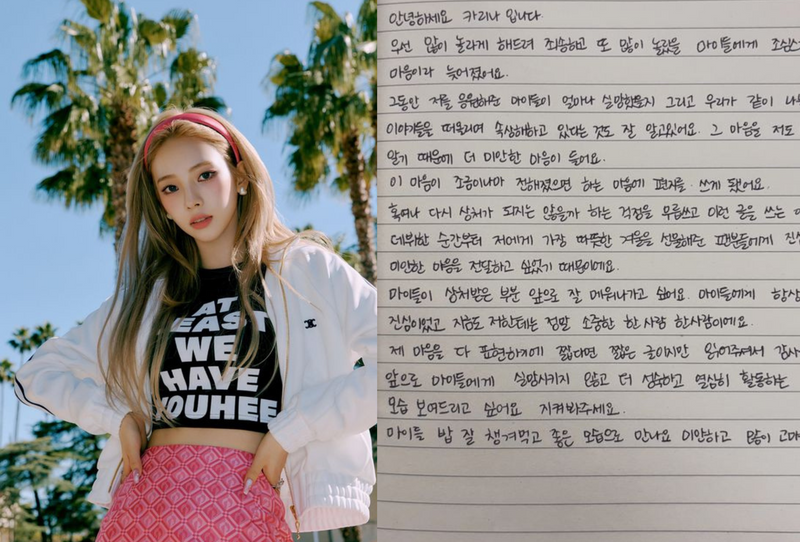 AT
EAST
WE
HAVE
YOUHEE
안녕하세요 카리나 입니다.
우선 많이 놀라게 해드려 죄송하고 또 많이 놀랐을 마이들에게 조심스
마음이라 늦어졌어요.
그동안 저를 응원해준 마이들이 얼마나 실망했을지 그리고 우리가 같이 나
이야기들을 떠올리며 속상해하고 있다는 것도 잘 알고있어요. 그 마음을 저도
알기 때문에 더 미안한 마음이 들어요.
이 마음이 조금이나마 전해졌으면 하는 마음에 편지를 쓰게 됐어요.
혹여나 다시 상처가 되지는 않을까 하는 걱정을 무릅쓰고 이런 글을 쓰는
데뷔한 순간부터 저에게 가장 따뜻한 겨울을 선물해준 팬분들에게 진심
미안한 마음을 전달하고 싶었기 때문이에요.
마이들이 상처받은 부분 앞으로 잘 메워나가고 싶어요. 마이들에게 항상
진심이었고 지금도 저한테는 정말 소중한 한사람 한사람이에요.
제 마음을 다 표현하기에 짧다면 짧은 글이지만 읽어주셔서 감사
앞으로 마이들에게 실망시키지 않고 더 성숙하고 열심히 활동하는
모습 보여드리고 싶어요 지켜봐주세요.
마이들 밥 잘 챙겨먹고 좋은 모습으로 만나요 미안하고 많이 고마